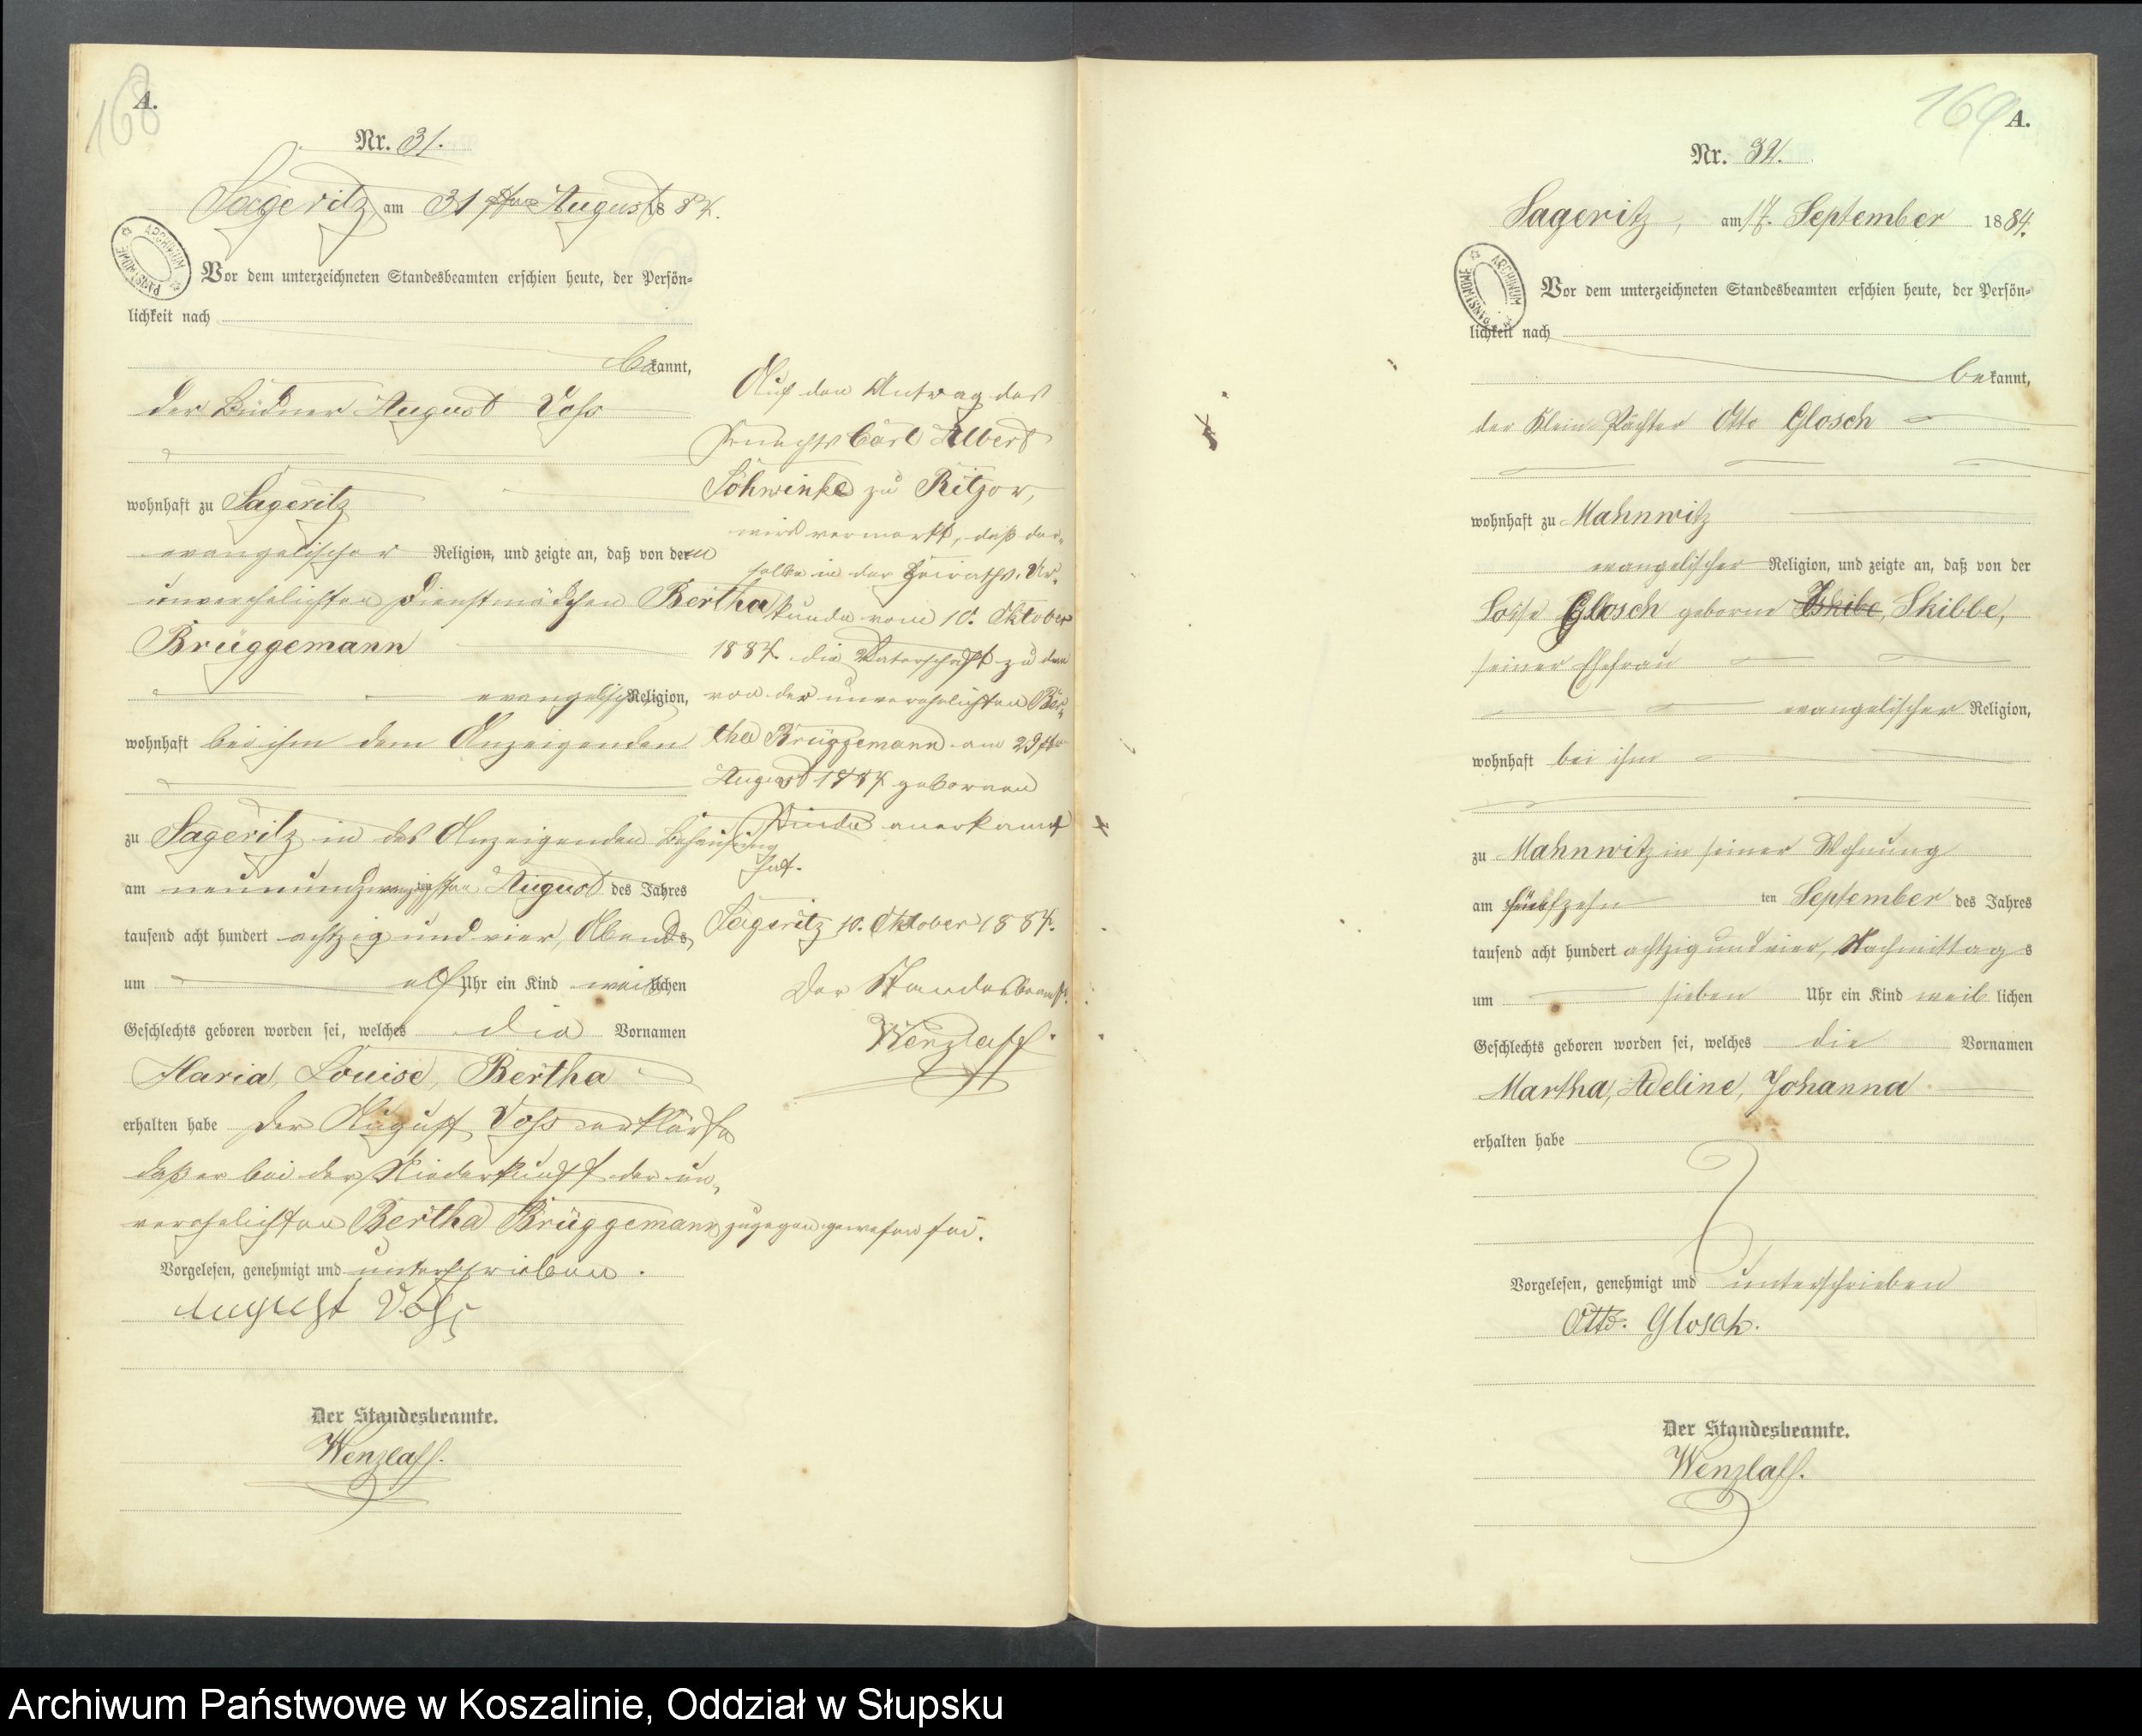 168
A.
Nr. 31.
Sageritz am 31ten August 1884.
ARCHIWUM PAŃSTWOWE
Vor dem unterzeichneten Standesbeamten erschien heute, der Persön-
lichkeit nach
bekannt,
der Büdner August Voss
wohnhaft zu Sageritz
evangelischer Religion, und zeigte an, daß von der
unverehelichten Dienstmädchen Bertha
Brüggemann
evangelischer Religion,
wohnhaft bei ihm dem Anzeigenden
zu Sageritz in des Anzeigenden Behausung
am neunundzwanzigsten August des Jahres
tausend acht hundert achtzig und vier, Abends
um elf Uhr ein Kind weiblichen
Geschlechts geboren worden sei, welches die Vornamen
Maria, Louise, Bertha
erhalten habe Der August Voss erklärte
daß er bei der Niederkunft der un-
verehelichten Bertha Brüggemann zugegen gewesen sei.
Vorgelesen, genehmigt und unterschrieben.
August Voss
Der Standesbeamte.
Wenzlaff.
Auf den Antrag des
Knechts Carl Albert
Schwinke zu Ritzow,
wird vermerkt, daß der-
selbe in der Heiraths-Ur-
kunde vom 10. Oktober
1884 die Vaterschaft zu dem
von der unverehelichten Ber-
tha Brüggemann am 29ten
August 1884 geborenen
Kinde anerkannt
hat.
Sageritz 10. Oktober 1884.
Der Standesbeamte.
Wenzlaff.
169
A.
Nr. 32.
Sageritz, am 17. September 1884.
ARCHIWUM PAŃSTWOWE
Vor dem unterzeichneten Standesbeamten erschien heute, der Persön-
lichkeit nach
bekannt,
der Klein Pächter Otto Glosch
wohnhaft zu Mahnwitz
evangelischer Religion, und zeigte an, daß von der
Glosch geborne Skibbe,
seiner Ehefrau
evangelischer Religion,
wohnhaft bei ihm
zu Mahnwitz in seiner Wohnung
am fünfzehn ten September des Jahres
tausend acht hundert achtzig und vier, Nachmittags
um sieben Uhr ein Kind weiblichen
Geschlechts geboren worden sei, welches die Vornamen
Martha, Adeline, Johanna
erhalten habe
Vorgelesen, genehmigt und unterschrieben
Otto. Glosch.
Der Standesbeamte.
Wenzlaff.
Archiwum Państwowe w Koszalinie, Oddział w Słupsku